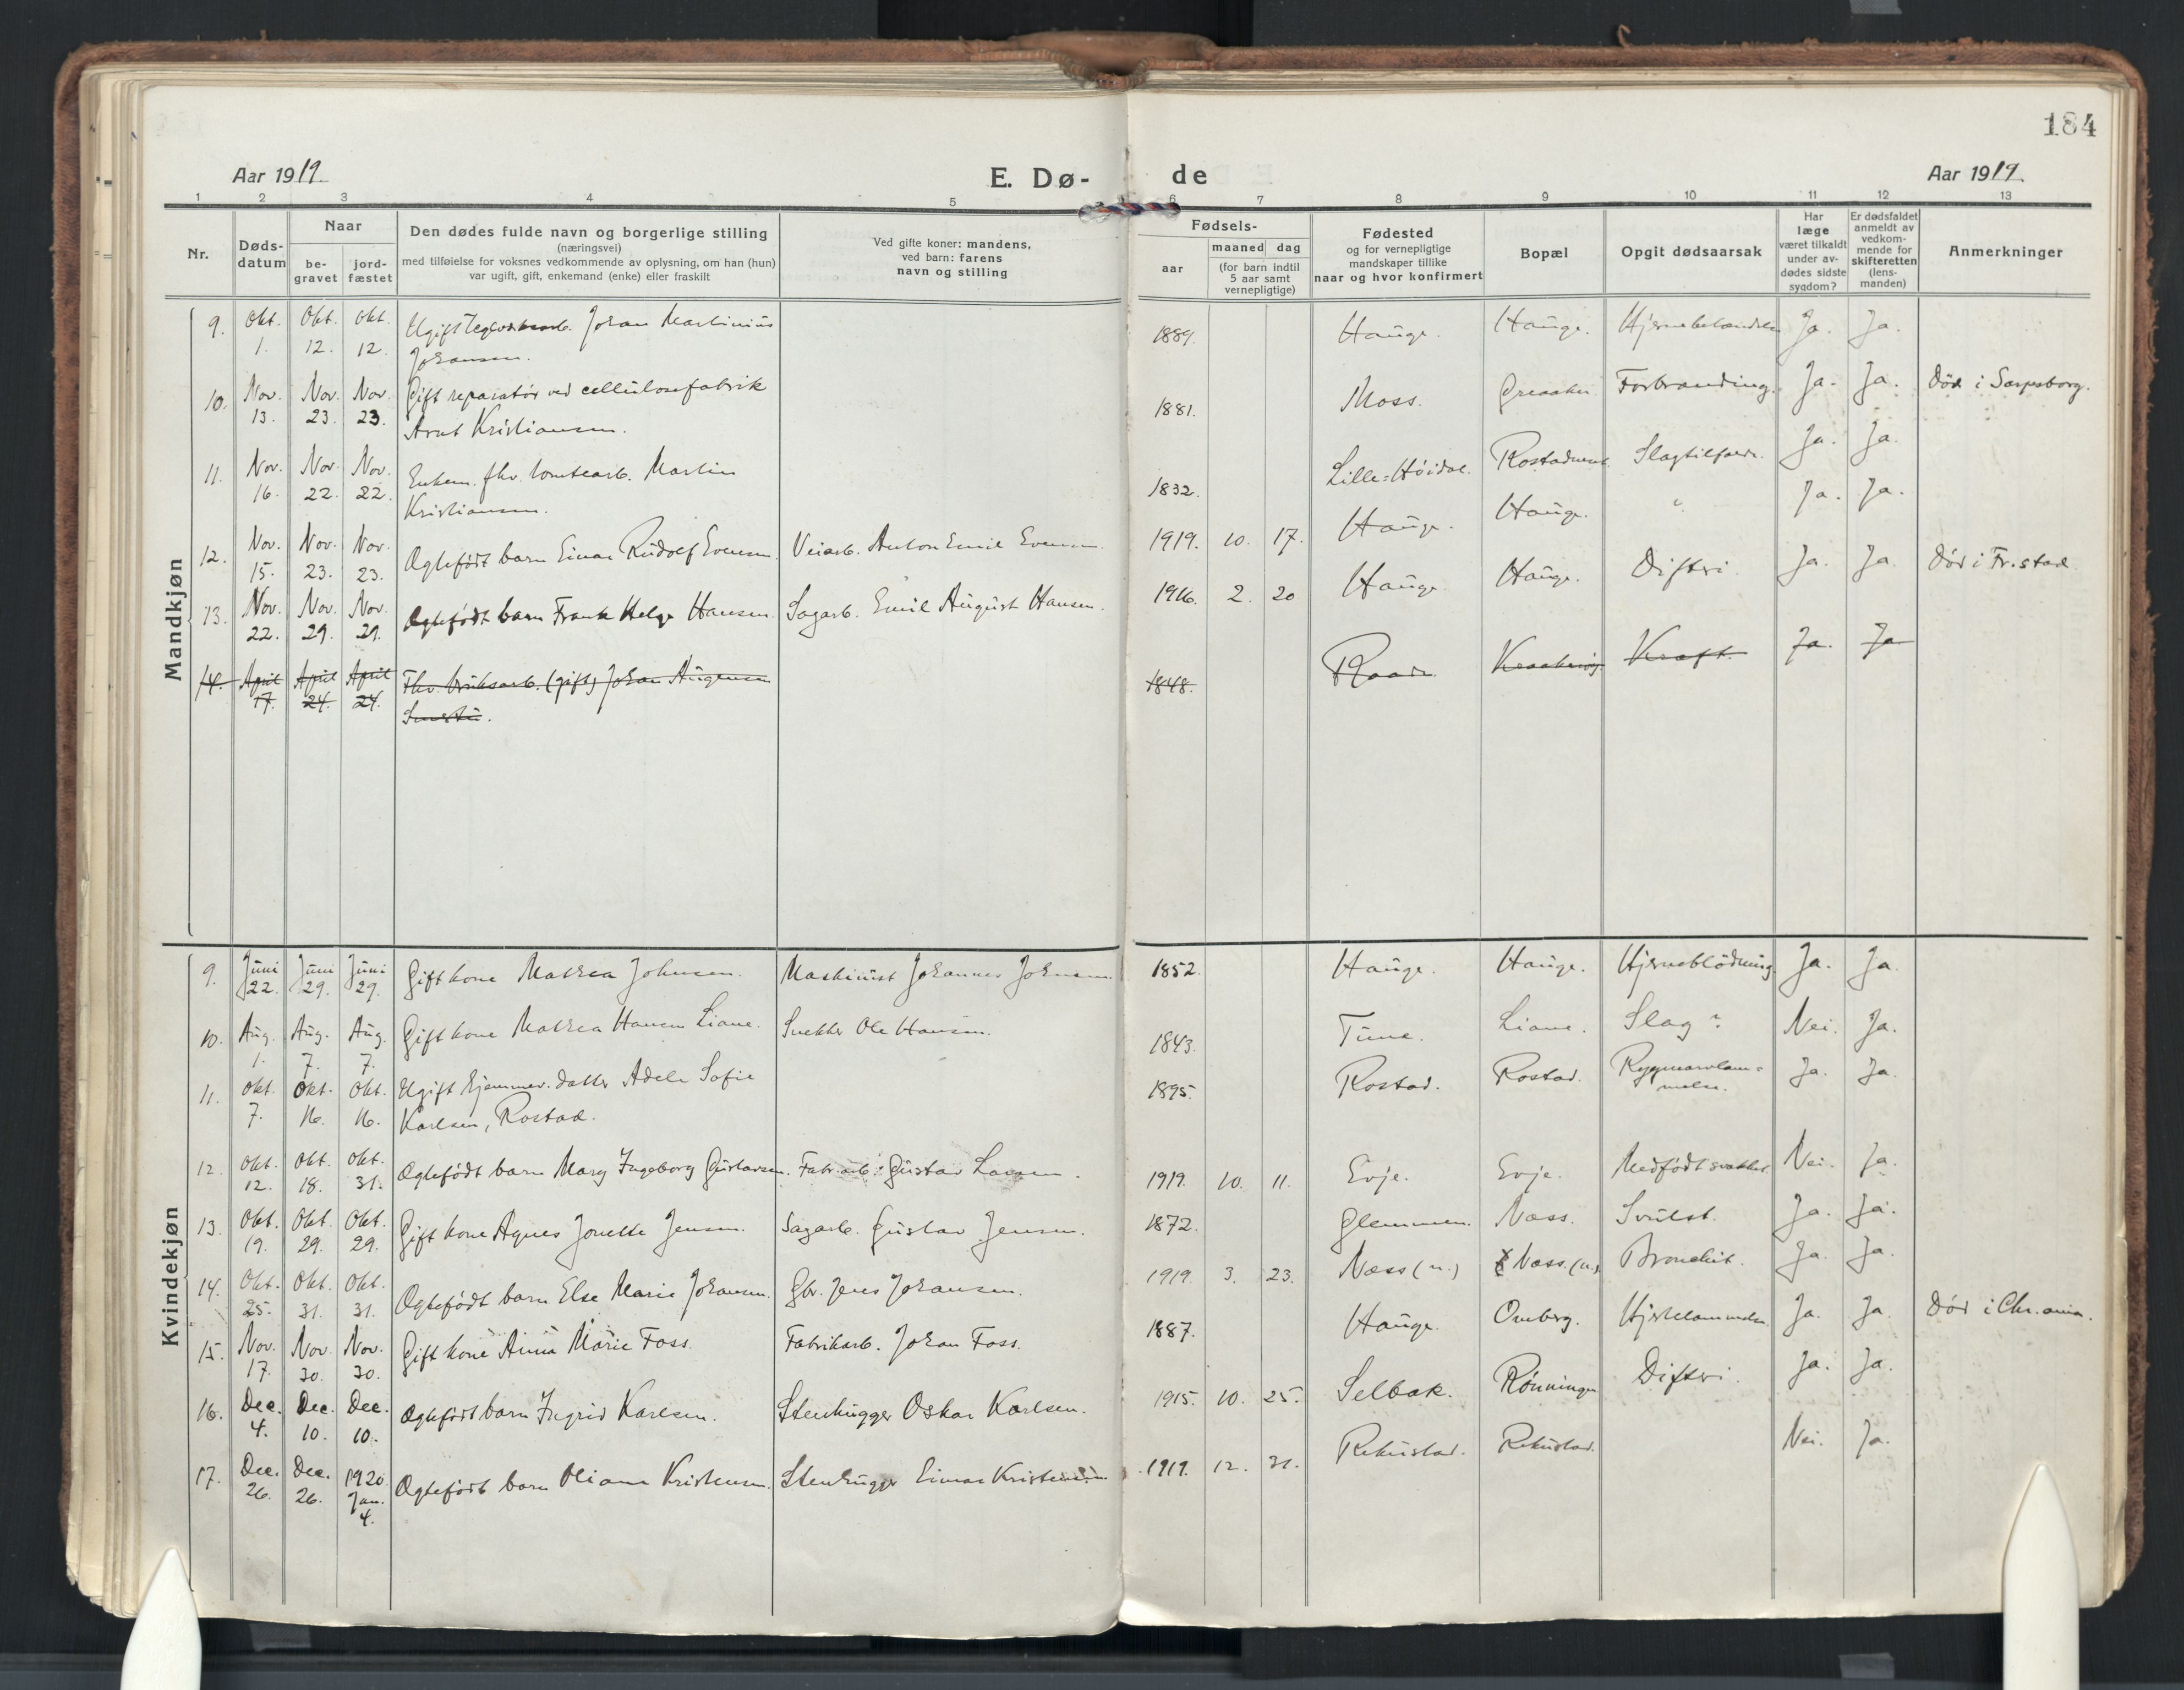 184
Aar 1919.
E. Dø- de
Aar 1919.
1 2 3 4 5 6 7 8 9 10 11 12 13
Nr.
Døds-
datum
Naar
be-
gravet
jord-
fæstet
Den dødes fulde navn og borgerlige stilling
(næringsvei)
med tilføielse for voksnes vedkommende av oplysning, om han (hun)
var ugift, gift, enkemand (enke) eller fraskilt
Ved gifte koner: mandens,
ved barn: farens
navn og stilling
Fødsels-
aar
maaned dag
(for barn indtil
5 aar samt
vernepligtige)
Fødested
og for vernepligtige
mandskaper tillike
naar og hvor konfirmert
Bopæl
Opgit dødsaarsak
Har
læge
været tilkaldt
under av-
dødes sidste
sygdom?
Er dødsfaldet
anmeldt av
vedkom-
mende for
skifteretten
(lens-
manden)
Anmerkninger
Mandkjøn
9. Okt. Okt. Okt. Ugift Johan Martinius 1889. Hauge. Hauge. Ja. Ja.
1. 12. 12. Johansen.
10. Nov. Nov. Nov. Gift reparatør ved cellulosefabrik 1881. Moss. Greaaker Forbrænding. Ja. Ja. Død i Sarpsborg.
13. 23. 23. Arnt Kristiansen.
11. Nov. Nov. Nov. Enkem. fhv. tomtearb. Martin 1832. Lille-Høidal. Slagtilfælde. Ja. Ja.
16. 22. 22. Kristiansen.
12. Nov. Nov. Nov. Ægtefødt barn Einar Rudolf Evensen. Veiarb. Anton Emil Evensen. 1919. 10. 17. Hauge. Hauge. " Ja. Ja.
15. 23. 23.
13. Nov. Nov. Nov. Ægtefødt barn Frank Helge Hansen. Sagarb. Emil August Hansen. 1916. 2. 20 Hauge. Hauge. Difteri. Ja. Ja. Død i Fr.stad.
22. 29. 29.
14. April April April Fhv. bruksarb. (gift) Johan Augensen 1848. Raade. Kræft. Ja. Ja
17. 24. 24.
Kvindekjøn
9. Juni Juni Juni Gift kone Mathea Johnsen. Maskinist Johannes Johnsen. 1852. Hauge. Hauge. Hjerneblødning. Ja. Ja.
22. 29. 29.
10. Aug. Aug. Aug. Gift kone Mathea Hansen Liane. Snekker Ole Hansen. 1843. Tune. Liane. Slag? Nei. Ja.
1. 7. 7.
11. Okt. Okt. Okt. Ugift hjemmev. datter Adele Sofie 1895. Rostad. Rostad. Rygmarvslam- Ja. Ja.
7. 16. 16. Karlsen, Rostad. melse.
12. Okt. Okt. Okt. Ægtefødt barn Mary Ingeborg Gustavsen. Fabr.arb. Gustav Larsen. 1919. 10. 11. Evje. Evje. Medfødt svakhet. Nei. Ja.
12. 18. 31.
13. Okt. Okt. Okt. Gift kone Agnes Jonette Jensen. Sagarb. Gustav Jensen. 1872. Glemmen. Næss. Svulst. Ja. Ja.
19. 29. 29.
14. Okt. Okt. Okt. Ægtefødt barn Else Marie Johansen. Gbr. Jens Johansen. 1919. 3. 23. Næss (n.) Næss. (n.) Bronchit. Ja. Ja.
25. 31. 31.
15. Nov. Nov. Nov. Gift kone Anna Marie Foss. Fabrikarb. Johan Foss. 1887. Hauge. Omberg. Ja. Ja. Død i Chr.ania.
17. 30. 30.
16. Dec. Dec. Dec. Ægtefødt barn Ingrid Karlsen. Stenhugger Oskar Karlsen. 1915. 10. 25. Selbak. Rønningen Difteri. Ja. Ja.
4. 10. 10.
17. Dec. Dec. 1920 Ægtefødt barn Oliane Kristensen. Stenhugger Einar Kristensen. 1919. 12. 21. Rekustad. Rekustad. Nei. Ja.
26. 26. Jan.
4.